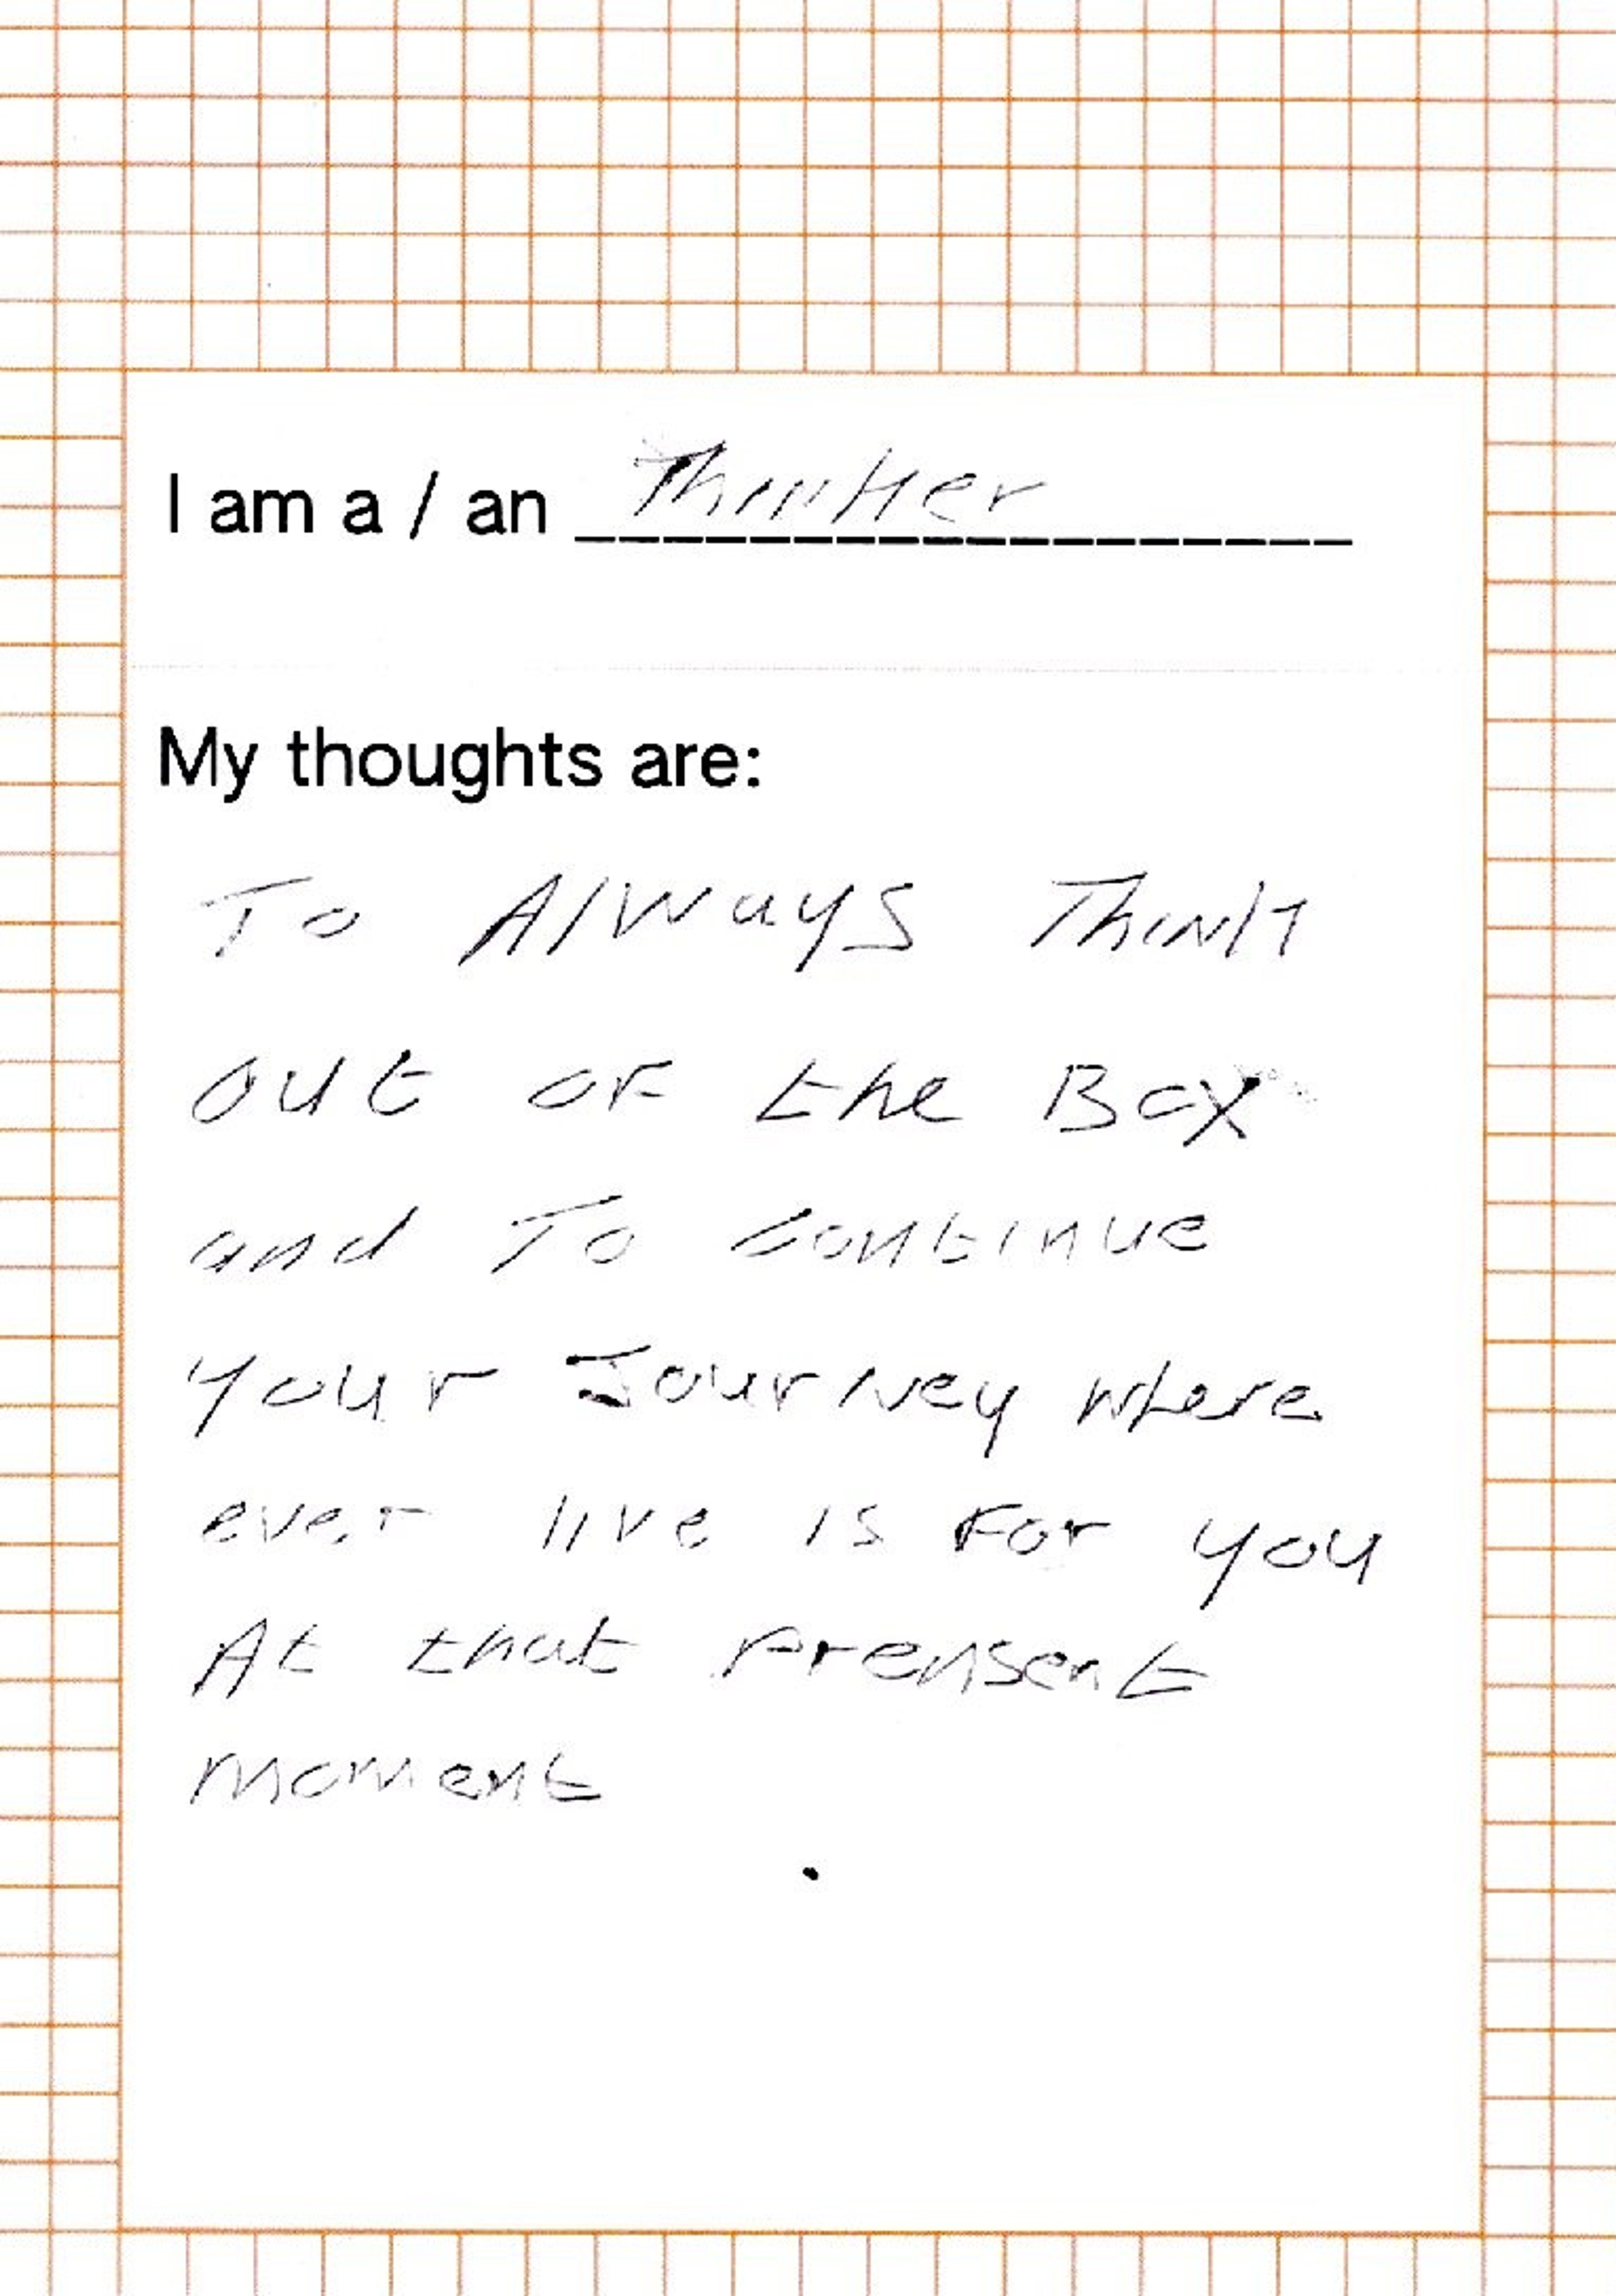 I am a / an Thinker
My thoughts are:
To Always Think
out of the Box
and To continue
your Journey where
ever live is for you
At that prensent
moment
.